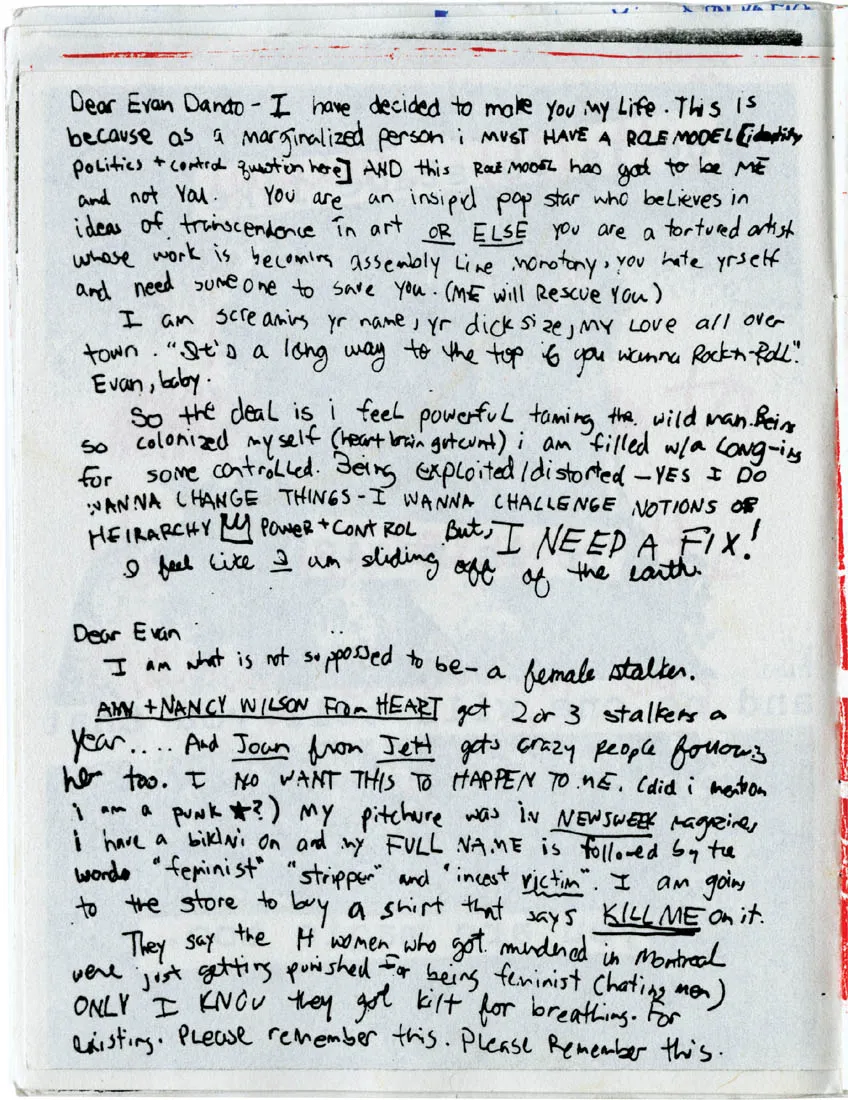 Dear Evan Dando - I have decided to make you my Life. This is
because as a marginalized person i MUST HAVE A ROLE MODEL [identity
politics + control question here] AND this ROLE MODEL has got to be ME
and not You. You are an insipid pop star who believes in
ideas of transcendence in art OR ELSE you are a tortured artist
whose work is becoming assembly Line monotony, you hate yrself
and need someone to save you. (ME will Rescue You)
I am screaming yr name, yr dick size, my Love all over
town. "It's a long way to the top if you wanna Rock-n-Roll".
Evan, baby.
So the deal is i feel powerful taming the wild man. Being
so colonized myself (heart brain gut cunt) i am filled w/a LONG-ing
for some controlled. Being exploited/distorted - YES I DO
WANNA CHANGE THINGS - I WANNA CHALLENGE NOTIONS OF
HEIRARCHY POWER + CONTROL But, I NEED A FIX!
I feel Like I am sliding off of the earth.
Dear Evan
I am what is not supposed to be - a female stalker.
ANN + NANCY WILSON From HEART got 2 or 3 stalkers a
year.... And Joan from Jett gets crazy people following
her too. I NO WANT THIS TO HAPPEN TO ME. (did i mention
i am a punk ★?) My pitchure was in NEWSWEEK magazine,
i have a bikini on and my FULL NAME is followed by the
words "feminist" "stripper" and "incest victim". I am going
to the store to buy a shirt that says KILL ME on it.
They say the 14 women who got murdered in Montreal
were just getting punished for being feminist (hating men)
ONLY I KNOW they got kilt for breathing. For
existing. Please remember this. Please Remember this.